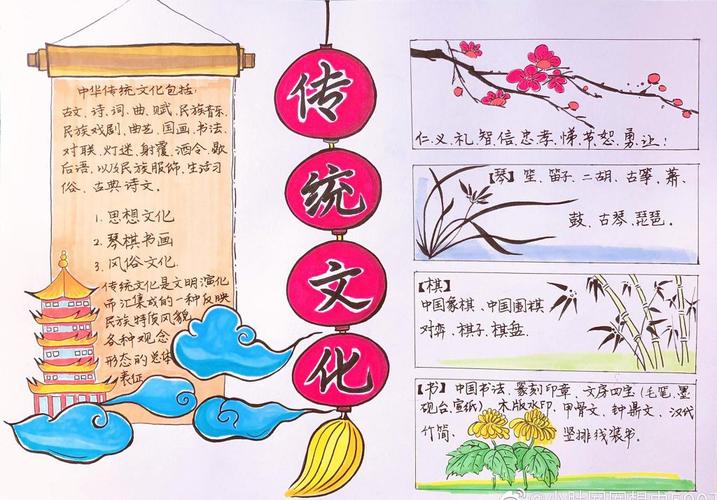 中华传统文化包括:
古文、诗、词、曲、赋、民族音乐、
民族戏剧、曲艺、国画、书法、
对联、灯迷、射覆、酒令、歇
后语、以及民族服饰、生活习
俗、古典诗文。
1. 思想文化
2. 琴棋书画
3. 风俗文化.
传统文化是文明演化
而汇集成的一种反映
民族特质风貌
各种观念
形态的总体
表征
传
统
文
化
仁、义、礼、智、信、忠、孝、悌、节、恕、勇、让;
【琴】笙、笛子、二胡、古筝、萧、
鼓、古琴、琵琶。
【棋】
中国象棋、中国围棋
对弈、棋子、棋盘、
【书】中国书法、篆刻印章、文房四宝(毛笔、墨
砚台、宣纸)、木版水印、甲骨文、钟鼎文、汉代
竹简、竖排线装书。